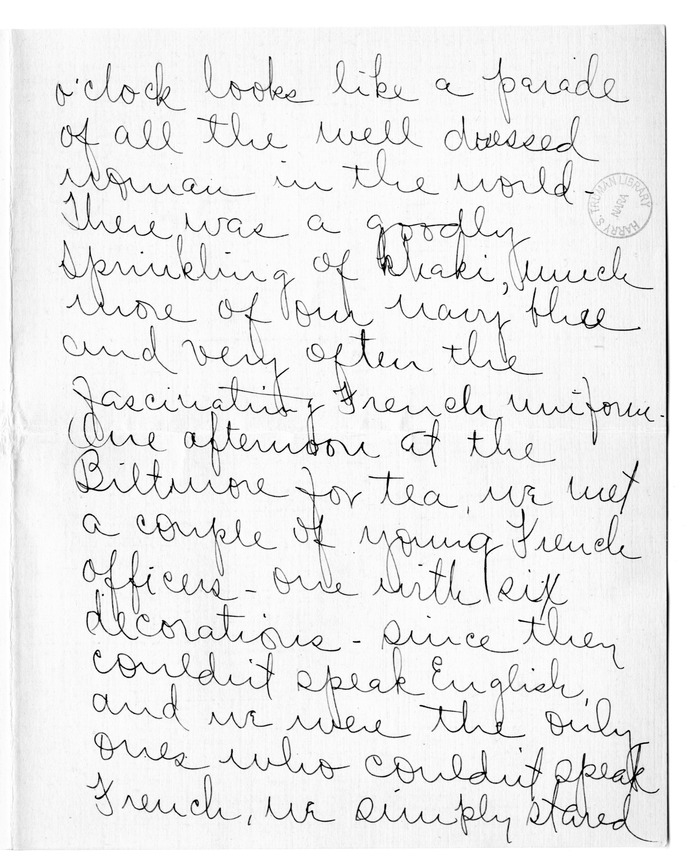 o'clock looks like a parade
of all the well dressed
woman in the world-
There was a goodly
sprinkling of khaki, much
more of our navy blue
and very often the
fascinating French uniform.
One afternoon at the
Biltmore for tea, we met
a couple of young French
officers - one with six
decorations - since they
couldn't speak English
and we were the only
ones who couldn't speak
French, we simply stared
HARRY S. TRUMAN LIBRARY
NARA